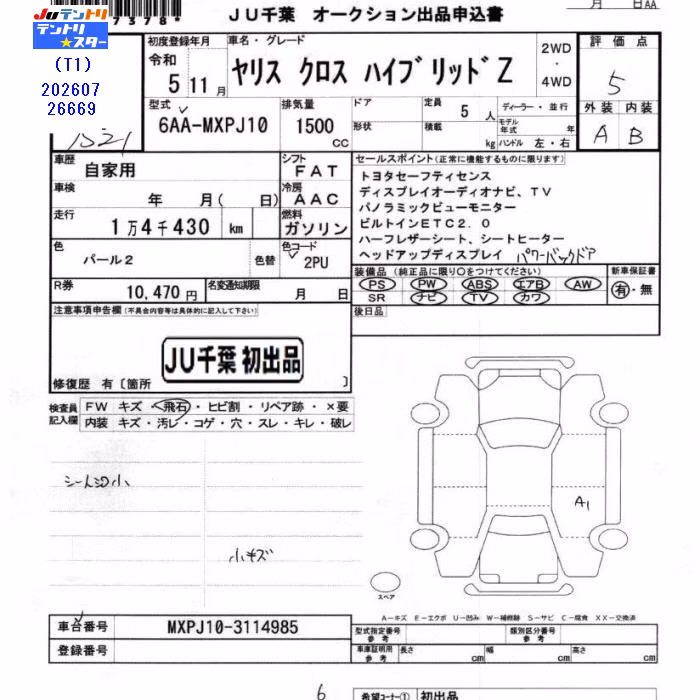 7378*
JU千葉 オークション出品申込書
月 日AA
JUテントリ
テントリ★スター
(T1)
202607
26669
初度登録年月
令和
5 11 月
車名・グレード
ヤリス クロス ハイブリッドZ
2WD
・
4WD
評価点
5
外装 内装
A B
型式
6AA-MXPJ10
排気量
1500
cc
ドア
形状
定員
5 人
積載
kg
ディーラー・並行
モデル年式 年
ハンドル 左・右
車歴
自家用
シフト
FAT
車検
年 月( 日)
冷房
AAC
走行
1万4千430 km
燃料
ガソリン
色
パール2
色替
色コード
2PU
R券
10,470円
名変通知期限
月 日
セールスポイント(正常に機能するものに限ります)
トヨタセーフティセンス
ディスプレイオーディオナビ、TV
パノラミックビューモニター
ビルトインETC2.0
ハーフレザーシート、シートヒーター
ヘッドアップディスプレイ パワーバックドア
装備品(純正品に限り○をつけてください)
PS PW ABS エアB AW
SR ナビ TV カワ
新車保証書
有・無
後日品
注意事項申告欄(不具合内容等は具体的に記入して下さい)
JU千葉 初出品
修復歴 有〔箇所 〕
検査員
記入欄
FW キズ・飛石・ヒビ割・リペア跡・×要
内装 キズ・汚レ・コゲ・穴・スレ・キレ・破レ
シートシワ小
小キズ
A1
スペア
A-キズ E-エクボ U-凹み W-補修跡 S-サビ C-腐食 XX-交換済
車台番号
MXPJ10-3114985
登録番号
型式指定番号
参考
類別区分番号
参考
車庫証明用
参考
長さ cm
幅 cm
高さ cm
6
希望コーナー① 初出品